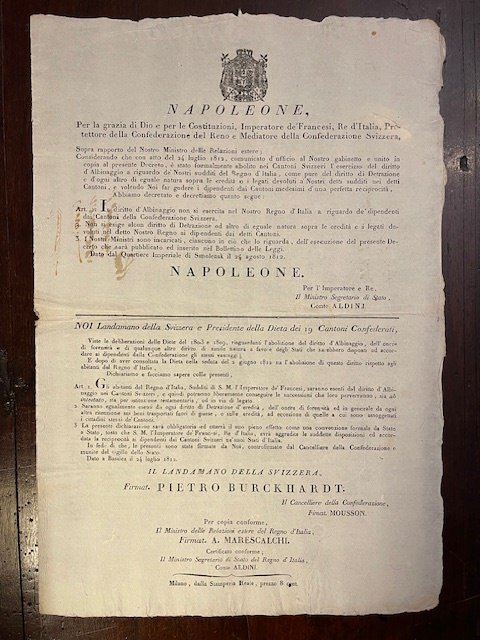 NAPOLEONE,
Per la grazia di Dio e per le Costituzioni, Imperatore de' Francesi, Re d'Italia, Pro-
tettore della Confederazione del Reno e Mediatore della Confederazione Svizzera,
Sopra rapporto del Nostro Ministro delle Relazioni estere;
Considerando che con atto del 24 luglio 1812, comunicato d'ufficio al Nostro gabinetto e unito in
copia al presente Decreto, è stato formalmente abolito nei Cantoni Svizzeri l'esercizio del diritto
d'Albinaggio a riguardo de' Nostri sudditi del Regno d'Italia, come pure del diritto di Detrazione
e d'ogni altro di eguale natura sopra le eredità e i legati devoluti a Nostri detti sudditi nei detti
Cantoni, e volendo Noi far godere i dipendenti dai Cantoni medesimi d'una perfetta reciprocità,
Abbiamo decretato e decretiamo quanto segue:
Art. 1. Il diritto d'Albinaggio non si esercita nel Nostro Regno d'Italia a riguardo de' dipendenti
dai Cantoni della Confederazione Svizzera.
Non si esige alcun diritto di Detrazione od altro di eguale natura sopra le eredità e i legati de-
voluti nel detto Nostro Regno ai dipendenti dai detti Cantoni.
3. I Nostri Ministri sono incaricati, ciascuno in ciò che lo riguarda, dell'esecuzione del presente De-
creto che sarà pubblicato ed inserito nel Bollettino delle Leggi.
Dato dal Quartiere Imperiale di Smolensk il 24 agosto 1812.
NAPOLEONE.
Per l'Imperatore e Re,
Il Ministro Segretario di Stato,
Conte ALDINI
NOI Landamano della Svizzera e Presidente della Dieta dei 19 Cantoni Confederati,
Viste le deliberazioni delle Diete del 1803 e 1809, risguardanti l'abolizione del diritto d'Albinaggio, dell'onere
di forensità e di qualunque altro diritto di simile natura a favore degli Stati che sarebbero disposti ad accor-
dare ai dipendenti dalla Confederazione gli stessi vantaggi;
E dopo di aver consultata la Dieta nella seduta del 2 giugno 1812 su l'abolizione di questo diritto rispetto agli
abitanti del Regno d'Italia,
Dichiariamo e facciamo sapere colle presenti,
Art. 1. Gli abitanti del Regno d'Italia, Sudditi di S. M. l'Imperatore de' Francesi, saranno esenti dal diritto d'Albi-
naggio nei Cantoni Svizzeri, e quindi potranno liberamente conseguire le successioni che loro perverranno, sia ad
intestato, sia per istituzione testamentaria, od in via di legato.
2. Saranno egualmente esenti da ogni diritto di Detrazione d'eredità, dell'onere di forensità ed in generale da ogni
altra ritenzione sui beni trasportati fuori di paese, e sulle eredità, ad eccezione di quelle a cui sono assoggettati
i cittadini stessi de' Cantoni.
3. La presente dichiarazione sarà obbligatoria ed otterrà il suo pieno effetto come una convenzione formale da Stato
a Stato, tosto che S. M. l'Imperatore de' Francesi, Re d'Italia, avrà aggradita le suddette disposizioni ed accor-
data la reciprocità ai dipendenti dai Cantoni Svizzeri ne' suoi Stati d'Italia.
In fede di che, le presenti sono state firmate da Noi, controfirmate dal Cancelliere della Confederazione e
munite del sigillo dello Stato.
Dato a Basilea il 24 luglio 1812.
IL LANDAMANO DELLA SVIZZERA,
Firmat. PIETRO BURCKHARDT.
Il Cancelliere della Confederazione,
Firmat. MOUSSON.
Per copia conforme,
Il Ministro delle Relazioni estere del Regno d'Italia,
Firmat. A. MARESCALCHI.
Certificato conforme;
Il Ministro Segretario di Stato del Regno d'Italia,
Conte ALDINI.
Milano, dalla Stamperia Reale, prezzo 8 cent.